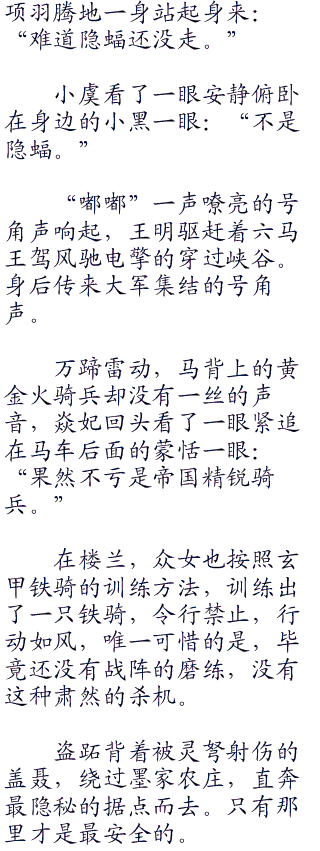 项羽腾地一身站起身来：
“难道隐蝠还没走。”
小虞看了一眼安静俯卧
在身边的小黑一眼：“不是
隐蝠。”
“嘟嘟”一声嘹亮的号
角声响起，王明驱赶着六马
王驾风驰电擎的穿过峡谷。
身后传来大军集结的号角
声。
万蹄雷动，马背上的黄
金火骑兵却没有一丝的声
音，焱妃回头看了一眼紧追
在马车后面的蒙恬一眼：
“果然不亏是帝国精锐骑
兵。”
在楼兰，众女也按照玄
甲铁骑的训练方法，训练出
了一只铁骑，令行禁止，行
动如风，唯一可惜的是，毕
竟还没有战阵的磨练，没有
这种肃然的杀机。
盗跖背着被灵弩射伤的
盖聂，绕过墨家农庄，直奔
最隐秘的据点而去。只有那
里才是最安全的。